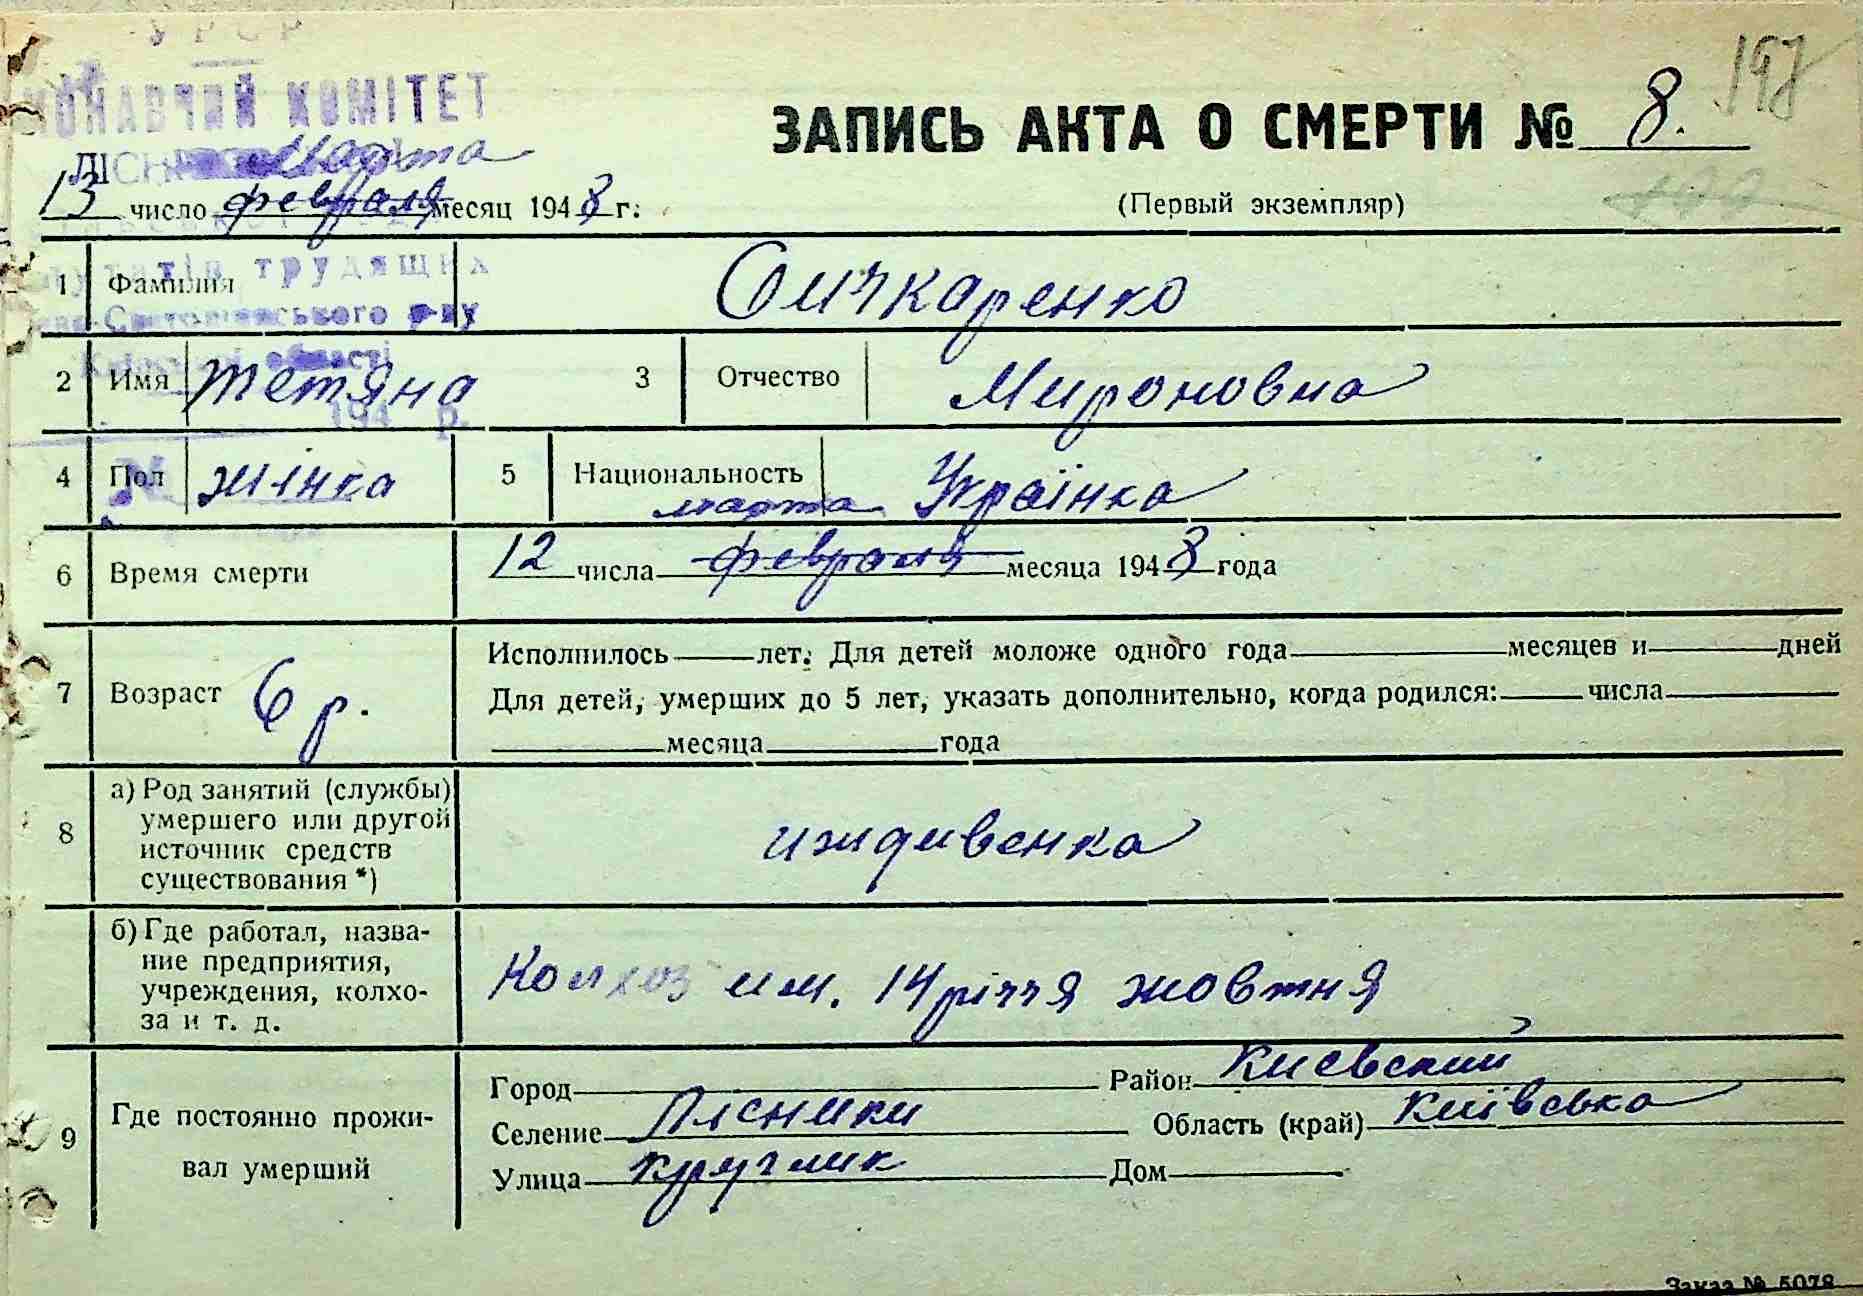 УРСР
КОМІТЕТ
ЗАПИСЬ АКТА О СМЕРТИ № 8.
197
марта
13 число февраля месяц 1948 г.
(Первый экземпляр)
трудящих
р-ну
області
1 Фамилия Сичкаренко
2 Имя Тетяна 3 Отчество Мироновна
194 р.
4 Пол жінка 5 Национальность Українка
марта
6 Время смерти 12 числа февраля месяца 1948 года
7 Возраст 6 р. Исполнилось лет. Для детей моложе одного года месяцев и дней
Для детей, умерших до 5 лет, указать дополнительно, когда родился: числа
месяца года
8 а) Род занятий (службы)
умершего или другой
источник средств
существования *)
иждивенка
б) Где работал, назва-
ние предприятия,
учреждения, колхо-
за и т. д.
Колхоз им. 14 річчя жовтня
9 Где постоянно прожи-
вал умерший
Город Район Киевский
Селение Лісники Область (край) Київська
Улица Круглик Дом
Заказ № 5078